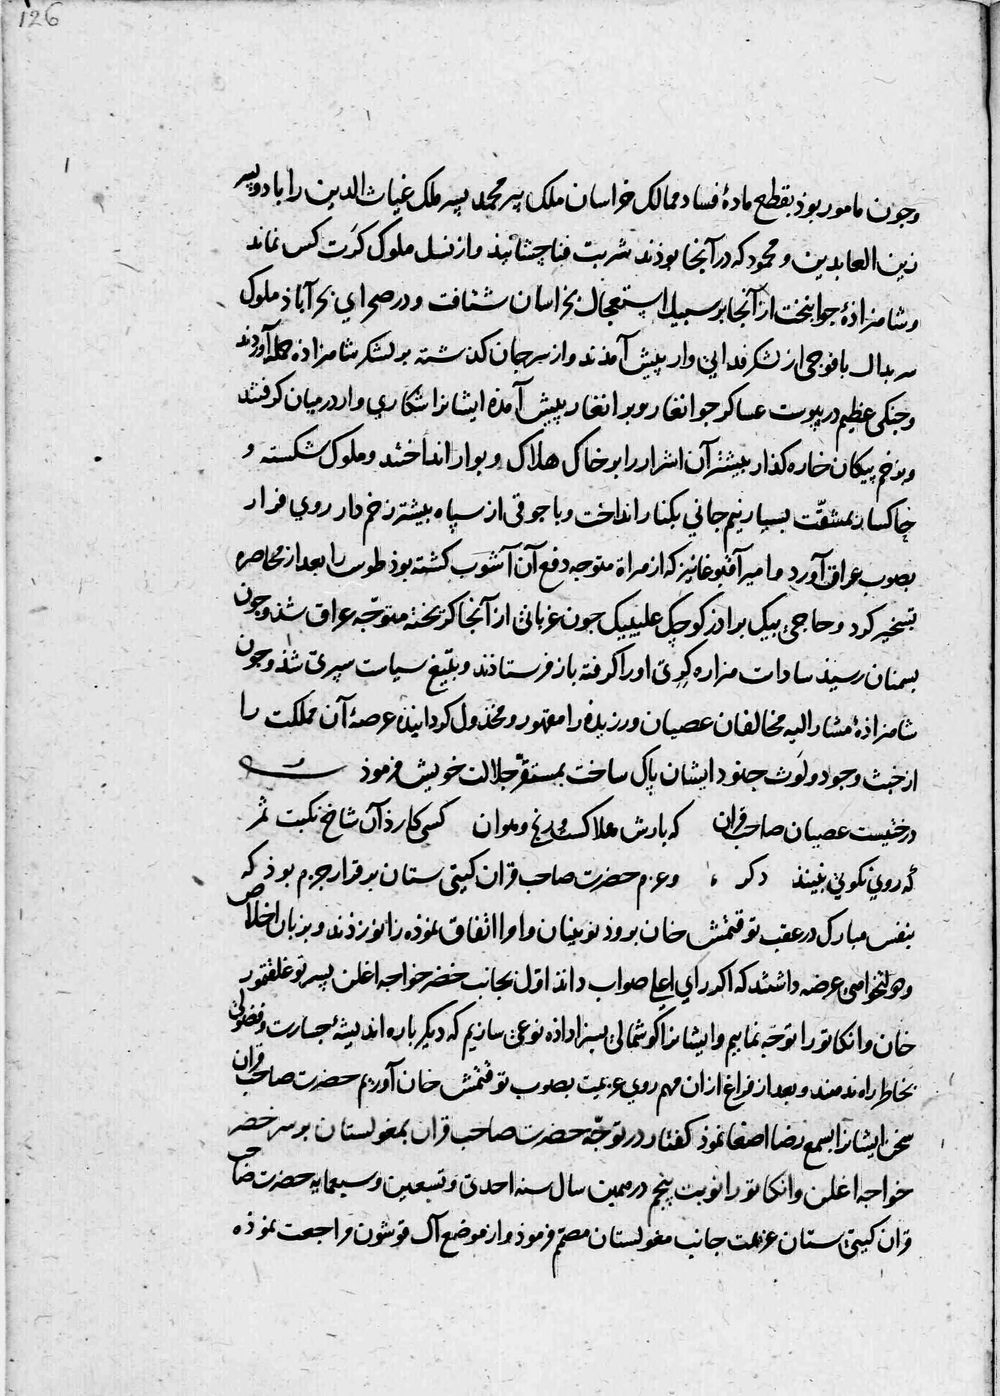 126
وجون مامور بوذ بقطع مادهٔ فساد ممالک خراسان ملک پیر محمد پسر ملک غیاث الدین را با دو پسر
زین العابدین و محمود که در آنجا بوذند شربت فنا چشانیذ و از نسل ملوک کرَت کس نماند
و شاهزاذهٔ جوانبخت از آنجا بر سبیل استعجال بخراسان شتافت و در صحرای بحرآباذ ملوک
سربدال با فوجی از لشکر فدایی وار پیش آمذند و از سر جان گذشته بر لشکر شاهزاذه حمله آوردند
و جنکی عظیم در پیوست عساکر جوانغار و برانغار پیش آمده ایشانرا شکاری وار در میان کرفتند
و بزخم پیکان خاره گذار بیشتر آن اشرار را بر خاک هلاک و بوار انداختند و ملوک شکسته و
خاکسار بمشقّت بسیار نیم جانی بکنار انداخت و با جوقی از سپاه بیشتر زخم دار روی فرار
بصوب عراق آورد و امیر آقبوغا نیز که از هراة متوجه دفع آن آشوب کشته بوذ طوس را بعد از محاصره
تسخیر کرد و حاجی بیک براذر کوچک علیبیک جون عربانی از آنجا کریخته متوجّه عراق شذ و جون
بسمنان رسیذ سادات هزاره کری او را کرفته باز فرستاذند و بتیغ سیاست سپری شذ و جون
شاهزاذهٔ مشار الیه مخالفان عصیان ورزیذه را مقهور و مخذول کردانیذه عرصهٔ آن مملکت را
از خبث وجود و لوث جنود ایشان پاک ساخت بمستقرّ جلالت خویش فرموذ
درختیست عصیان صاحب قران که بارش هلاکست و رنج و هوان کسی کارذ آن شاخ نکبت ثمر
که روی نکویی نبینذ دکر و عزم حضرت صاحب قران کیتی ستان برقرار جزم بوذ که
بنفس مبارک در عقب توقتمش خان بروذ نوینان و امرا اتفاق نموذه زانو زذند و بزبان اخلاص
و هواخواهی عرضه داشتند که اکر رای اعلی صواب داند اوّل بجانب خضر خواجه اغلن پسر توغلقتمور
خان و انکاتورا توجّه نماییم و ایشانرا کوشمالی بسزا داذه نوعی سازیم که دیکر باره اندیشهٔ جسارت و فضولی
بخاطر راه ندهند و بعد از فراغ ازان مهم روی عزیمت بصوب توقتمش خان آوریم حضرت صاحب قران
سخن ایشانرا بسمع رضا اصغا نموذ کفتار در توجّه حضرت صاحب قران بمغولستان بر سر خضر
خواجه اغلن و انکاتورا نوبت پنجم در همین سال سنه احدی و تسعین و سبعمایه حضرت صاحب
قران کیتی ستان عزیمت جانب مغولستان مصمّم فرموذ و از موضع آل قوشون مراجعت نموذه